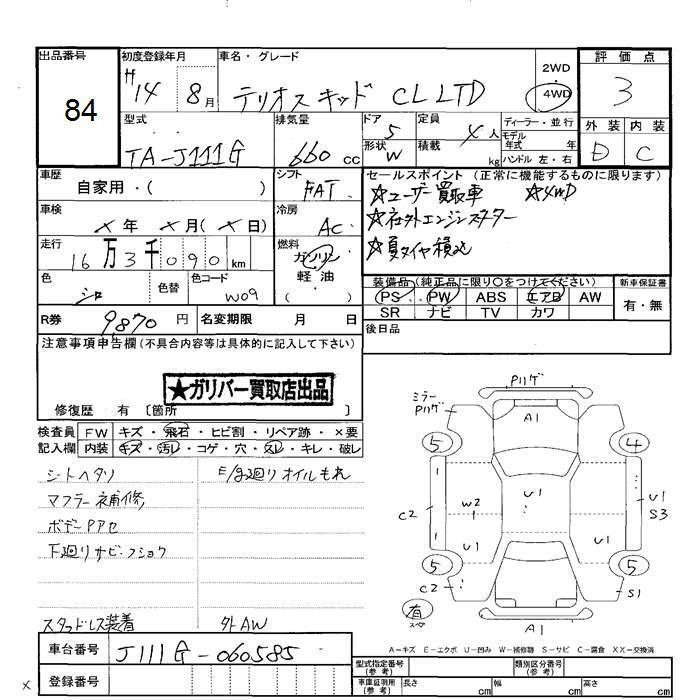 出品番号 初度登録年月 車名・グレード 2WD・4WD 評価点
84 H14 8月 テリオスキッド CL LTD 3
型式 排気量 ドア 定員 ディーラー・並行 外装 内装
TA-J111G 660cc 5 4人 モデル年式 年 D C
形状 W 積載 kg ハンドル 左・右
車歴 シフト セールスポイント (正常に機能するものに限ります)
自家用・( ) FAT ☆ユーザー買取車 ☆4WD
車検 冷房 ☆社外エンジンスターター
×年 ×月(×日) AC ☆夏タイヤ積込
走行 燃料
16万3千090km ガソリン・軽油
色 色替 色コード 装備品(純正品に限り〇をつけてください) 新車保証書
シロ W09 PS PW ABS エアB AW 有・無
SR ナビ TV カワ
R券 9,870円 名変期限 月 日 後日品
注意事項申告欄(不具合内容等は具体的に記入して下さい)
★ガリバー買取店出品
修復歴 有 [箇所 ]
検査員記入欄 FW キズ・飛石・ヒビ割・リペア跡・×要
内装 キズ・汚レ・コゲ・穴・スレ・キレ・破レ
シートヘタリ E/g廻りオイルもれ
マフラー補修
ボデーPアセ
下廻りサビ・フショク
スタッドレス装着 外AW
Pハゲ
ミラー
Pハゲ
A1
5 4
W2 U1 U1
C2 S3
U1 U1
5 5
C2 S1
有
スペア
A1
A=キズ E=エクボ U=凹み W=補修跡 S=サビ C=腐食 XX=交換済
車台番号 J111G-060585
登録番号
型式指定番号(参考) 類別区分番号(参考)
車庫証明用(参考) 長さ cm 幅 cm 高さ cm
×